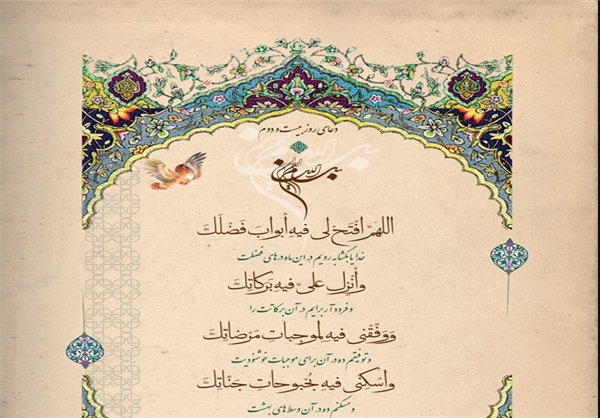 دعای روز بیست و دوم
بسم الله الرحمن الرحیم
اللهمّ افتح لی فیهِ أبوابَ فَضْلَكَ
خدایا بگشا به رویم در این ماه درهای فضلت
وأنزِل علیّ فیهِ بَرَكاتِكَ
و فرود آر برایم در آن برکاتت را
وَوَفّقْنی فیهِ لِموجِباتِ مَرْضاتِكَ
و توفیقم ده در آن برای موجبات خوشنودیت
واسْكِنّی فیهِ بُحْبوحاتِ جَنّاتِكَ
و مسکنم ده در آن وسط‌های بهشت